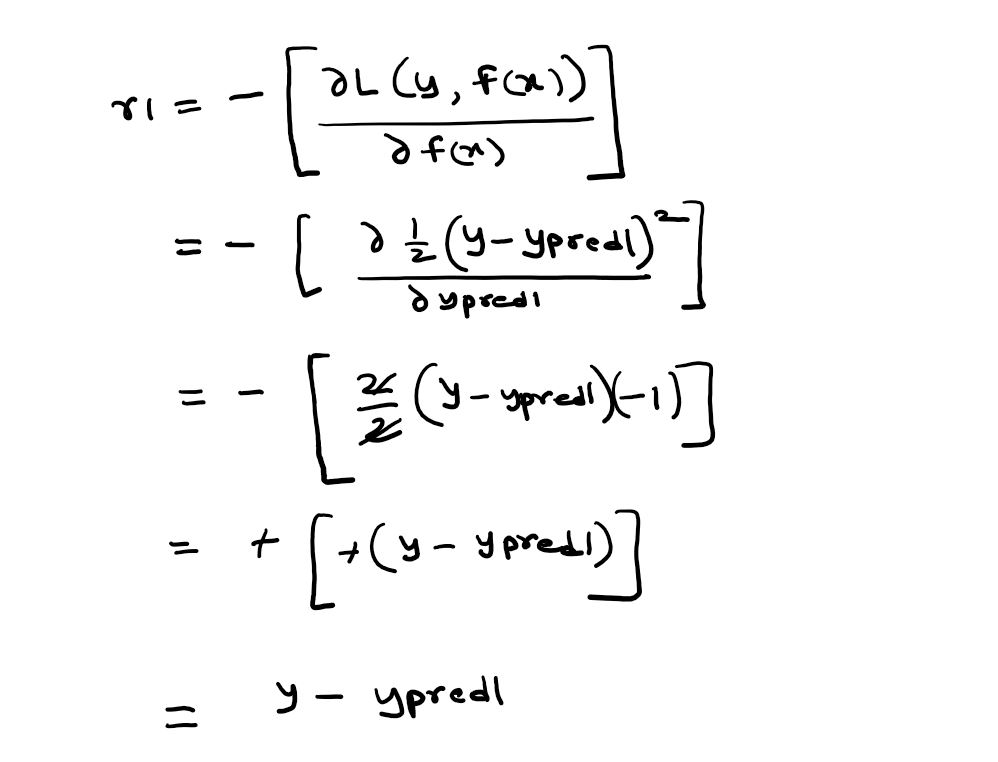 r1 = - [ ∂L(y, f(x)) / ∂f(x) ]
= - [ ∂ 1/2 (y - ypred1)² / ∂ypred1 ]
= - [ 2/2 (y - ypred1)(-1) ]
= + [ +(y - ypred1) ]
= y - ypred1